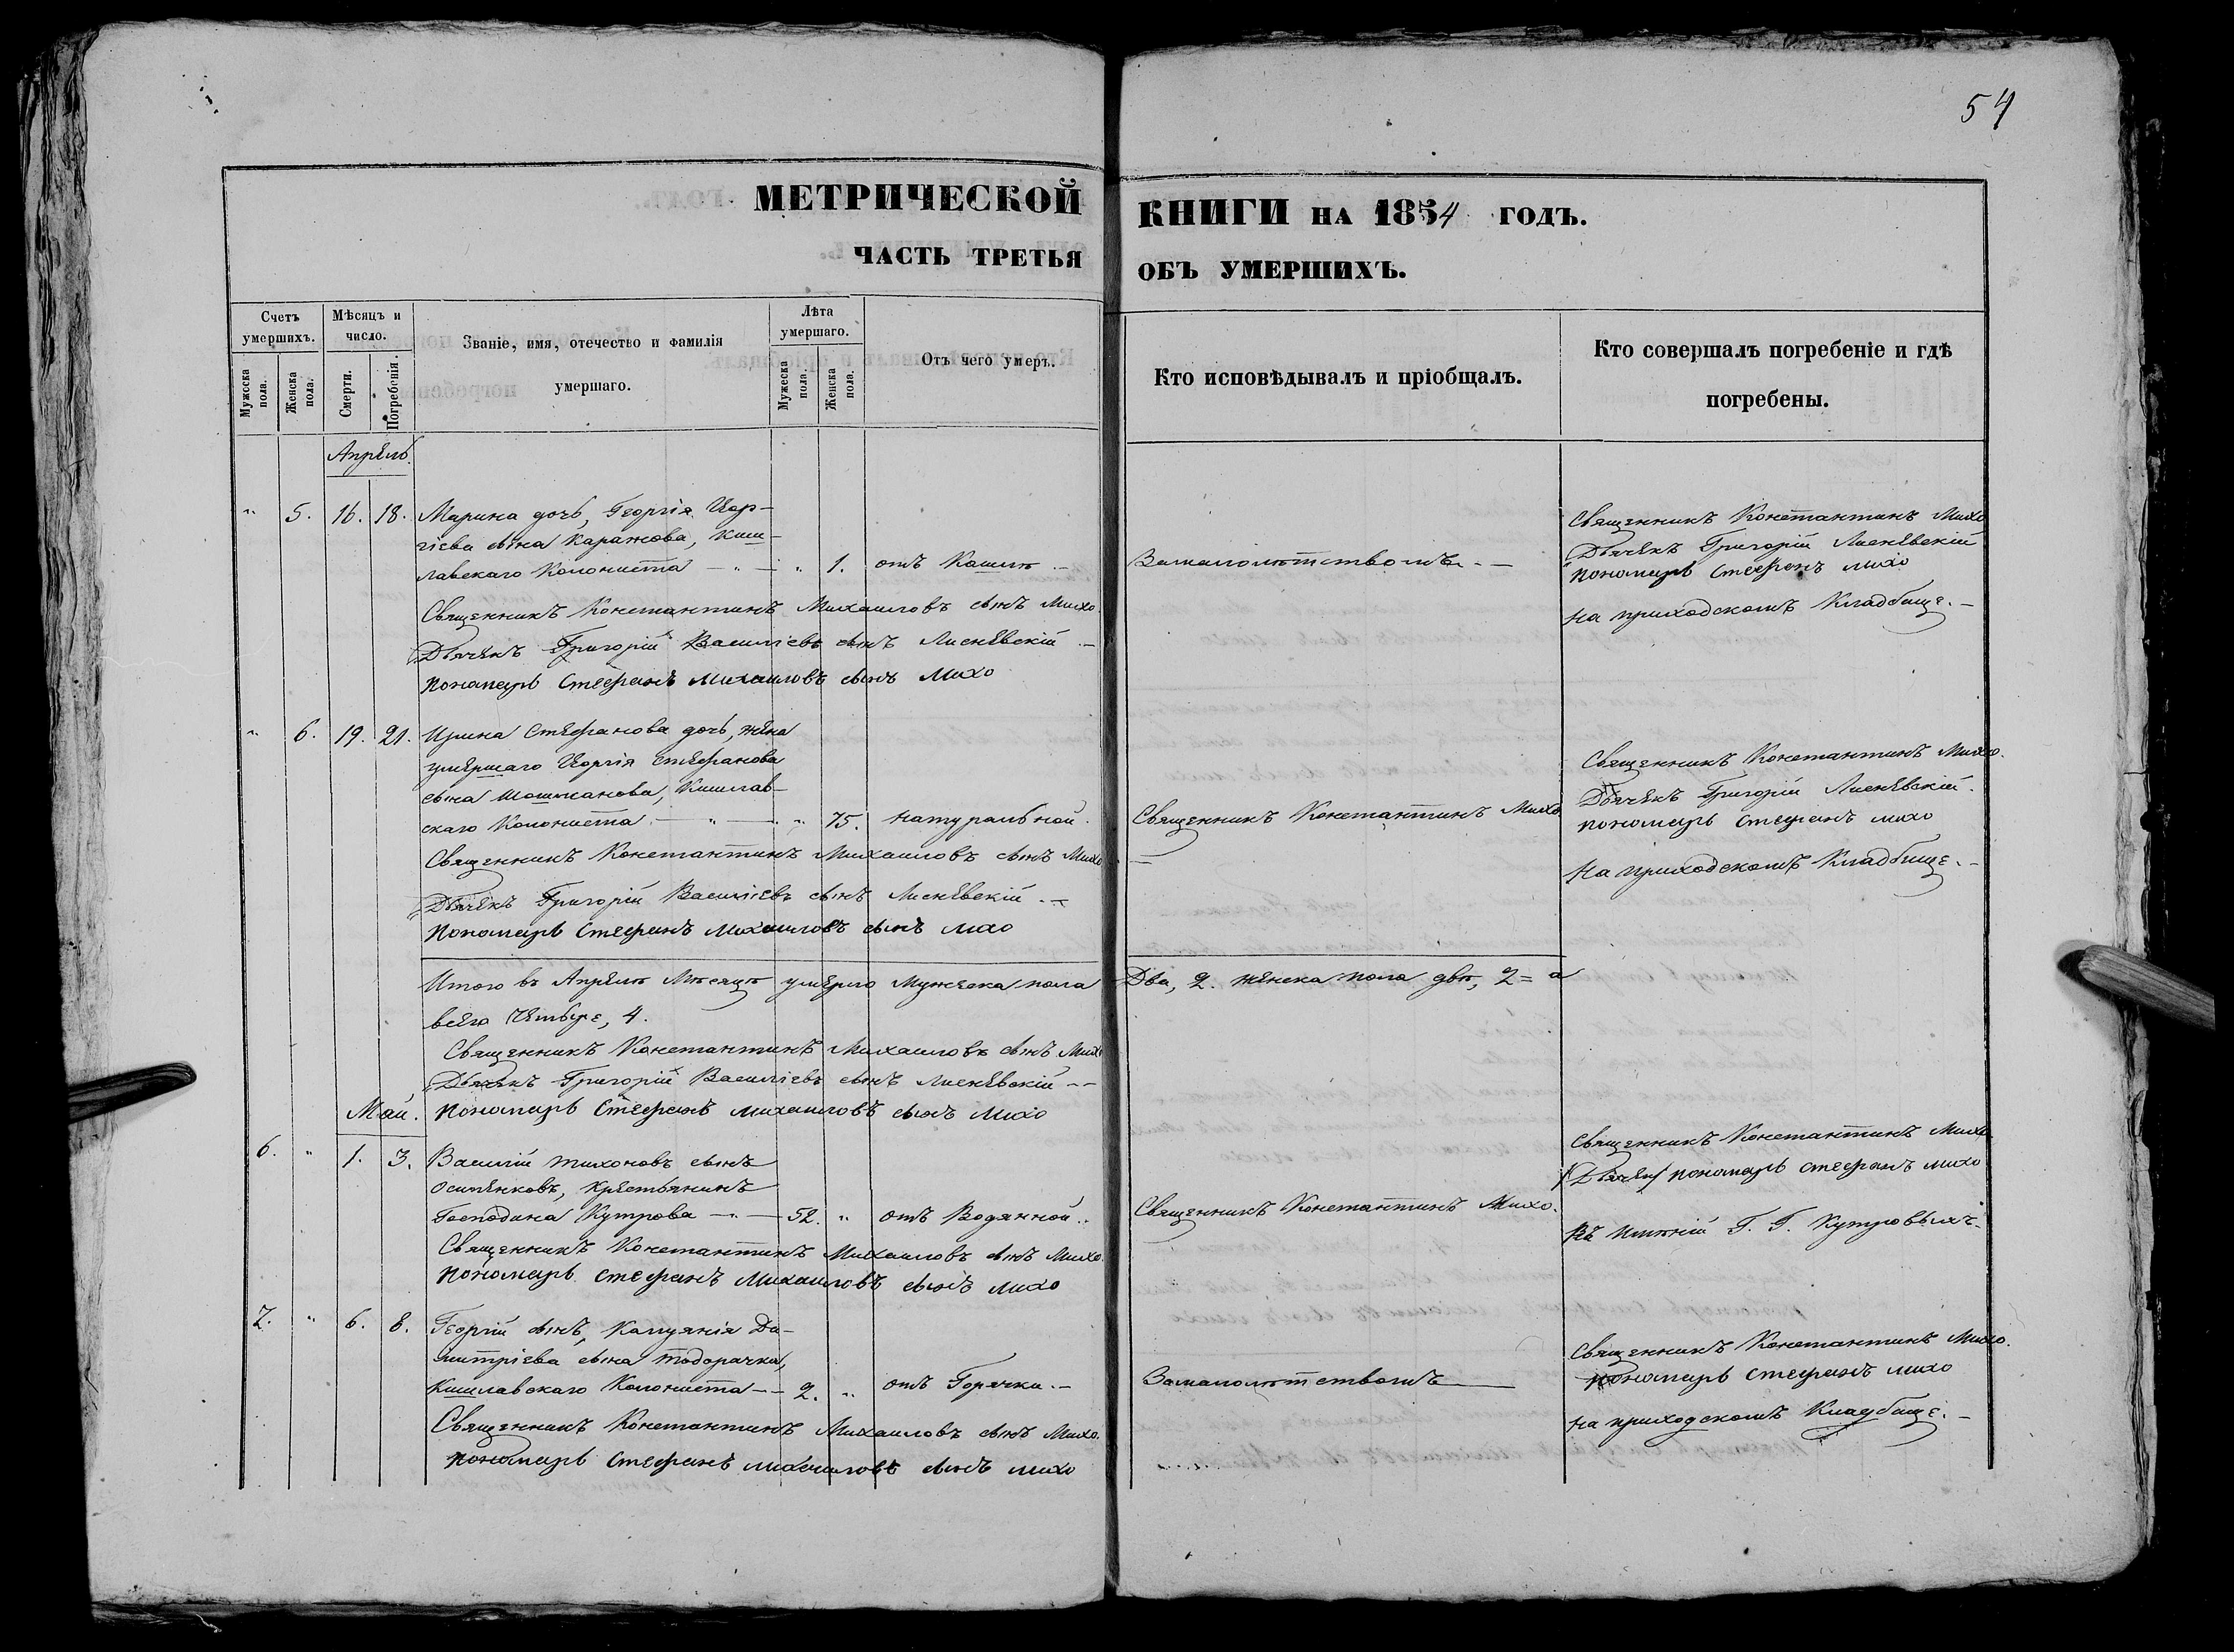 54
МЕТРИЧЕСКОЙ КНИГИ НА 1854 ГОДЪ.
ЧАСТЬ ТРЕТЬЯ ОБЪ УМЕРШИХЪ.
Счетъ умершихъ.
Мужеска пола.
Женска пола.
Мѣсяцъ и число.
Смерти.
Погребенія.
Званіе, имя, отечество и фамилія умершаго.
Лѣта умершаго.
Мужеска пола.
Женска пола.
Отъ чего умеръ.
Кто исповѣдывалъ и пріобщалъ.
Кто совершалъ погребеніе и гдѣ погребены.
Апрель.
" 5. 16. 18. Марина дочь, Георгія Геор-
гіева сына Каражова, Киш-
лавскаго Колониста — " — " 1. отъ Кашля.
Замалолѣтствомъ. —
Священникъ Константинъ Михо
Дьячекъ Григорій Лисневскій
пономарь Стефанъ михо
на приходскомъ Кладбище. —
Священникъ Константинъ Михаиловъ сынъ Михо
Дьячекъ Григорій Василіевъ сынъ Лисневскій —
Пономарь Стефанъ михаиловъ сынъ Михо
" 6. 19. 21. Ирина Стефанова дочь, жена
умершаго Георгія Стефанова
сына Шошманова, Кишлав-
скаго Колониста. — " — " 75. натуральной.
Священникъ Константинъ Михо
Священникъ Константинъ Михо.
Дьячекъ Григорій Лисневскій.
пономарь Стефанъ михо
На приходскомъ Кладбище. —
Священникъ Константинъ Михаиловъ сынъ Михо —
Дьячекъ Григорій Василіевъ сынъ Лисневскій. —
Пономарь Стефанъ Михаиловъ сынъ михо
Итого въ Апреле Месяце умерло Мужеска пола Два, 2. женска пола две, 2 = а
всего Четыре, 4.
Священникъ Константинъ Михаиловъ сынъ Михо
Дьячекъ Григорій Василіевъ сынъ Лисневскій —
Пономарь Стефанъ михаиловъ сынъ михо
Май.
6. " 1. 3. Василій Тихоновъ сынъ
Осипенковъ, Крестьянинъ
Господина Кутрова — " — 52. " отъ Водянной.
Священникъ Константинъ Михо.
Священникъ Константинъ Михо.
/Дьячек/ пономарь Стефанъ михо
въ имѣніи Г. Г. Кутровыхъ.
Священникъ Константинъ Михаиловъ сынъ Михо.
Пономарь Стефанъ Михаиловъ сынъ михо
7. " 6. 8. Георгій сынъ, Ди-
митріева сына Тодорачки,
Кишлавскаго Колониста — — 2. " отъ Горячки. —
Замалолѣтствомъ —
Священникъ Константинъ Михо.
пономарь Стефанъ михо
на приходскомъ Кладбище. —
Священникъ Константинъ Михаиловъ сынъ Михо.
пономарь Стефанъ михаиловъ сынъ михо